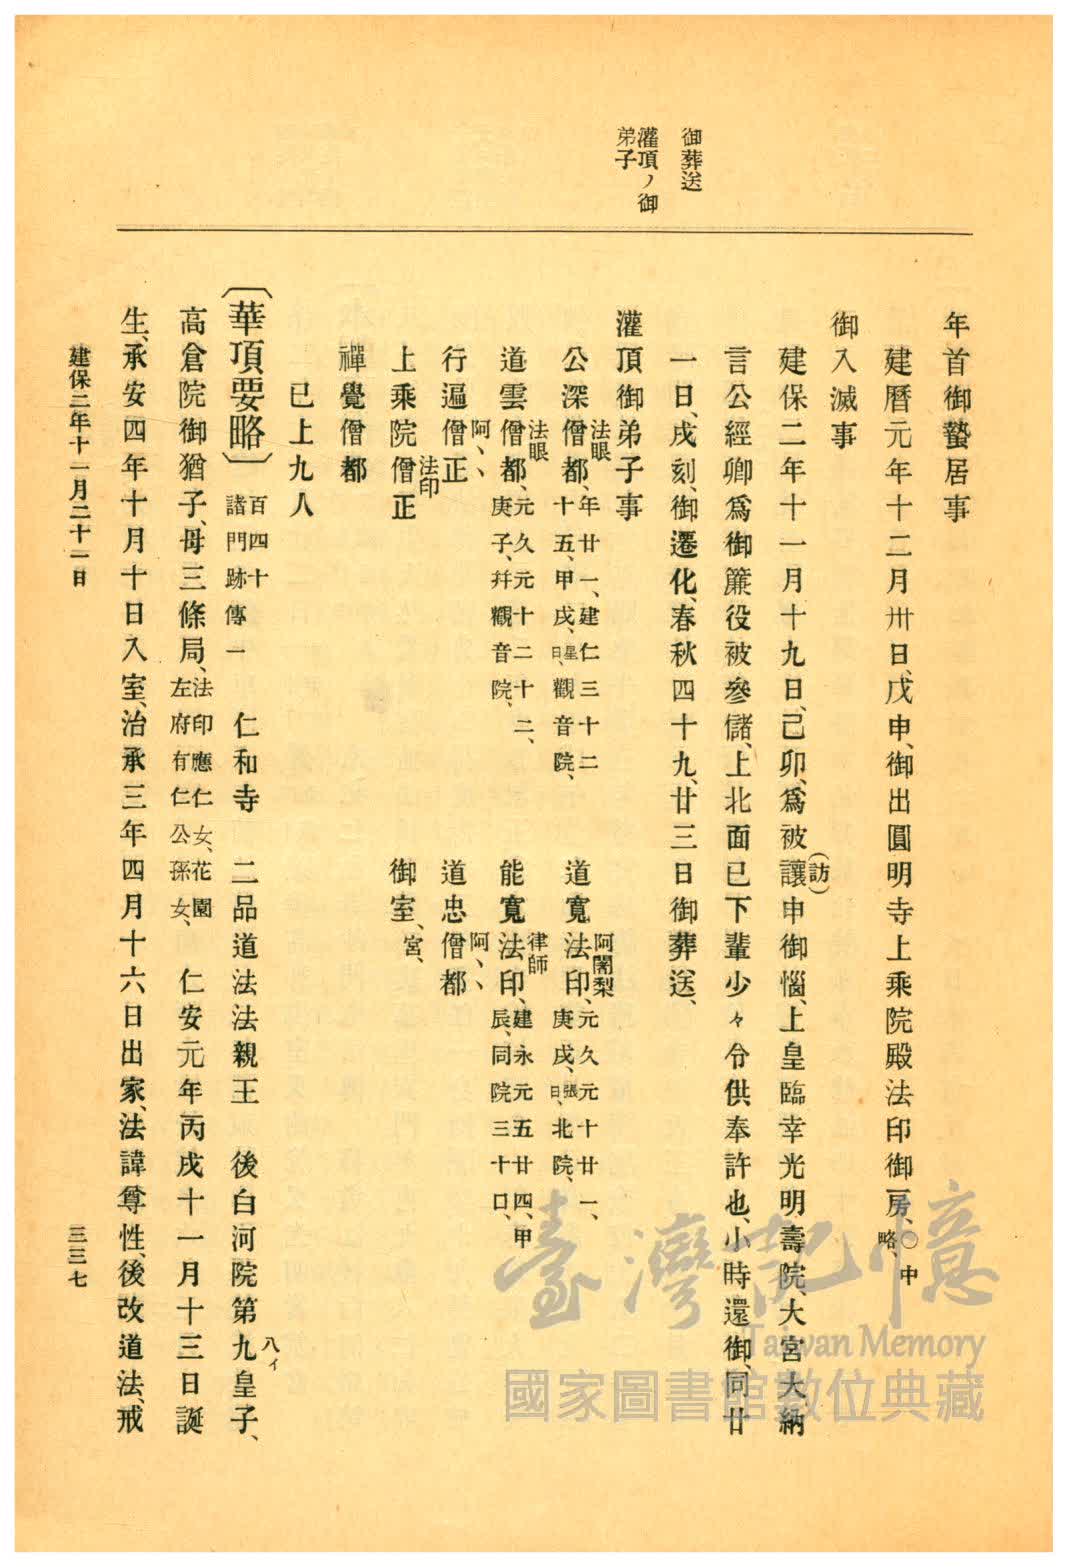 御葬送
灌頂ノ御
弟子
年首御蟄居事
建曆元年十二月卅日、戊申、御出圓明寺上乘院殿法印御房、〇中
略、
御入滅事
建保二年十一月十九日、己卯、爲被讓(訪)申御惱、上皇臨幸光明壽院、大宮大納
言公經卿爲御簾役被參儲、上北面已下輩少々令供奉許也、小時還御、同廿
一日、戌刻、御遷化、春秋四十九、廿三日御葬送、
灌頂御弟子事
公深僧都、法眼 年廿一、建仁三十二十五、甲戌、星日、觀音院、 道寬法印、阿闍梨 元久元十廿一、庚戌、張日、北院、
道雲僧都、法眼 元久元十二十二、庚子、幷觀音院、 能寬法印、律師 建永元五廿四、甲辰、同院三十口、
行遍僧正 阿、、 道忠僧都 阿、、
上乘院僧正 法印 御室、宮、
禪覺僧都
已上九人
〔華頂要略〕百四十諸門跡傳一 仁和寺 二品道法法親王 後白河院第九皇子、八イ
高倉院御猶子、母三條局、法印應仁女、花園左府有仁公孫女、 仁安元年丙戌十一月十三日誕
生、承安四年十月十日入室、治承三年四月十六日出家、法諱尊性、後改道法、戒
建保二年十一月二十一日
三三七
臺灣記憶
Taiwan Memory
國家圖書館數位典藏